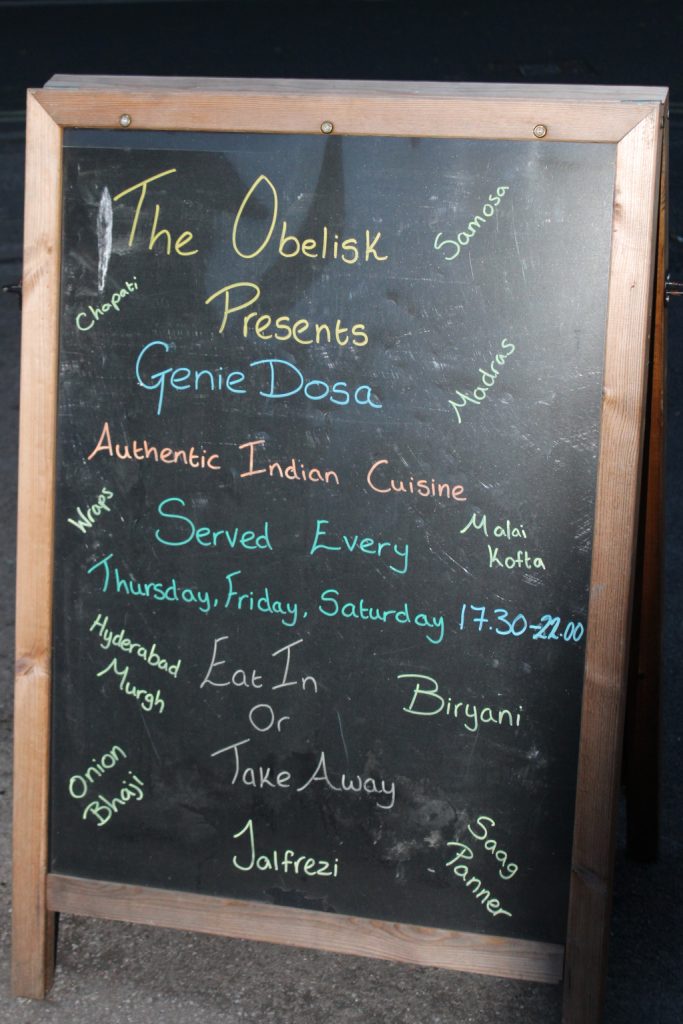 The Obelisk
Samosa
Chapati
Presents
Genie Dosa
Madras
Authentic Indian Cuisine
Wraps
Served Every
Malai
Kofta
Thursday, Friday, Saturday 17.30-22.00
Hyderabad
Murgh
Eat In
Or
Biryani
Take Away
Onion
Bhaji
Jalfrezi
Saag
Panner